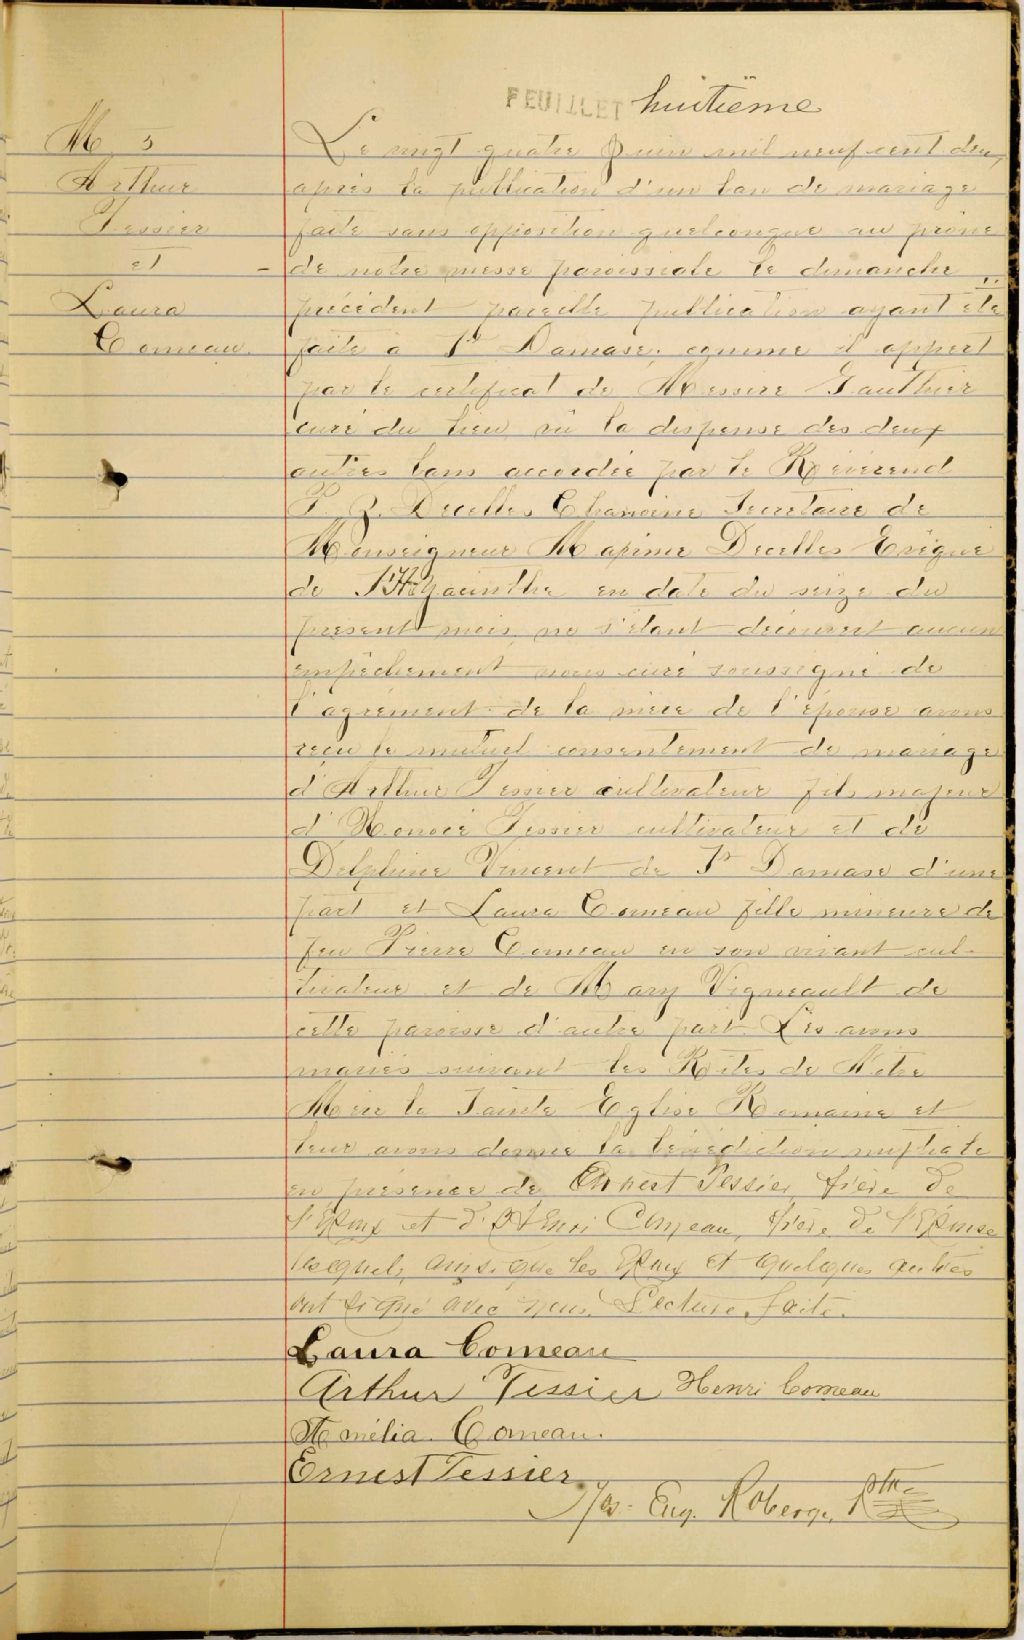 FEUILLET huitième
M. 5
Arthur
Tessier
et
Laura
Comeau.
Le vingt quatre Juin mil neuf cent deux,
après la publication d'un ban de mariage
faite sans opposition quelconque au prône
de notre messe paroissiale le dimanche
précédent pareille publication ayant été
faite à St Damase, comme il appert
par le certificat de Messire Gauthier
curé du lieu vû la dispense des deux
autres bans accordée par le Révérend
P. Z. Decelles Chanoine Secretaire de
Monseigneur Maxime Decelles Evêque
de St Hyacinthe en date du seize du
present mois, ne s'étant découvert aucun
empêchement nous curé soussigné de
l'agrément de la mère de l'épouse avons
reçu le mutuel consentement de mariage
d'Arthur Tessier cultivateur fils majeur
d'Honoré Tessier cultivateur et de
Delphine Vincent de St Damase d'une
part et Laura Comeau fille mineure de
feu Pierre Comeau en son vivant cul-
tivateur et de Mary Vigneault de
cette paroisse d'autre part. Les avons
mariés suivant les Rites de Nôtre
Mère la Sainte Eglise Romaine et
leur avons donné la bénédiction nuptiale
en présence de Ernest Tessier, frère de
l'Epoux et d'Henri Comeau, frère de l'Epouse
lesquels, ainsi que les Epoux et quelques autres
ont signé avec nous. Lecture faite.
Laura Comeau
Arthur Tessier Henri Comeau
Amélia Comeau.
Ernest Tessier
Jos. Eug. Roberge, Ptre